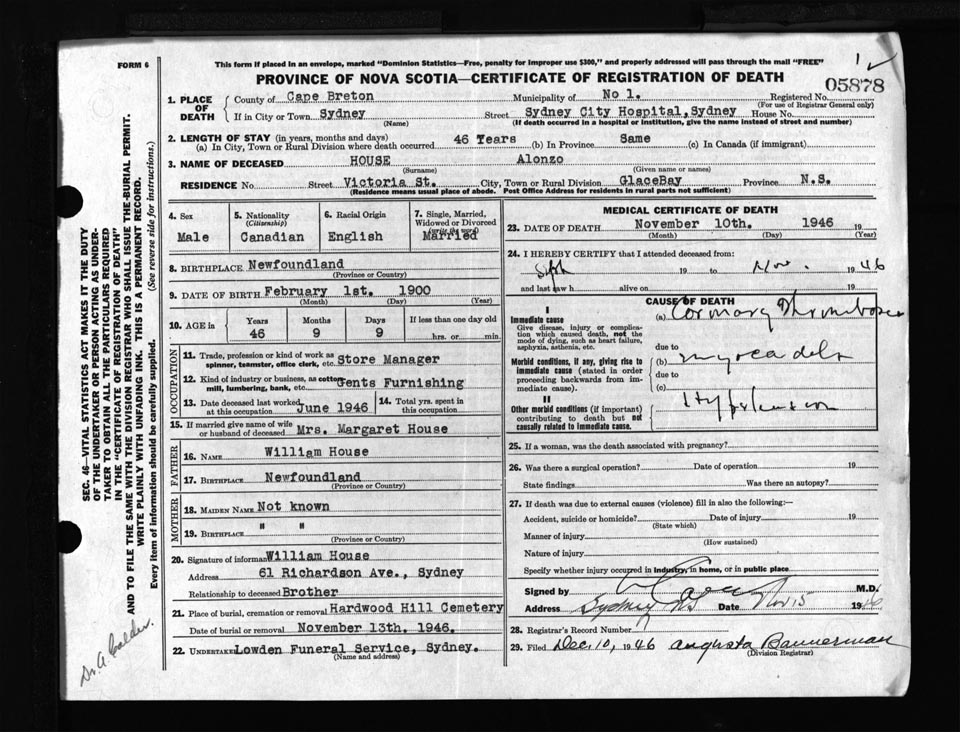 FORM 6
This form if placed in an envelope, marked "Dominion Statistics—Free, penalty for improper use $300," and properly addressed will pass through the mail "FREE"
PROVINCE OF NOVA SCOTIA—CERTIFICATE OF REGISTRATION OF DEATH
05878
1. PLACE OF DEATH
County of Cape Breton Municipality of No 1. Registered No.
(For use of Registrar General only)
If in City or Town Sydney Street Sydney City Hospital, Sydney House No.
(Name) (If death occurred in a hospital or institution, give the name instead of street and number)
2. LENGTH OF STAY (in years, months and days)
(a) In City, Town or Rural Division where death occurred 46 Years (b) In Province Same (c) In Canada (if immigrant)
3. NAME OF DECEASED HOUSE Alonzo
(Surname) (Given name or names)
RESIDENCE No. Street Victoria St. City, Town or Rural Division GlaceBay Province N.S.
(Residence means usual place of abode. Post Office Address for residents in rural parts not sufficient)
4. Sex
Male
5. Nationality
(Citizenship)
Canadian
6. Racial Origin
English
7. Single, Married,
Widowed or Divorced
(write the word)
Married
8. BIRTHPLACE Newfoundland
(Province or Country)
9. DATE OF BIRTH February 1st. 1900
(Month) (Day) (Year)
10. AGE in
Years Months Days If less than one day old
46 9 9 hrs. or min.
OCCUPATION
11. Trade, profession or kind of work as
spinner, teamster, office clerk, etc. Store Manager
12. Kind of industry or business, as cotton
mill, lumbering, bank, etc. Gents Furnishing
13. Date deceased last worked
at this occupation June 1946
14. Total yrs. spent in
this occupation
15. If married give name of wife
or husband of deceased Mrs. Margaret House
FATHER
16. Name William House
17. Birthplace Newfoundland
(Province or Country)
MOTHER
18. Maiden Name Not known
19. Birthplace " "
(Province or Country)
20. Signature of informant William House
Address 61 Richardson Ave., Sydney
Relationship to deceased Brother
21. Place of burial, cremation or removal Hardwood Hill Cemetery
Date of burial or removal November 13th. 1946.
22. Undertaker Lowden Funeral Service, Sydney.
(Name and address)
MEDICAL CERTIFICATE OF DEATH
23. DATE OF DEATH November 10th. 1946 19
(Month) (Day) (Year)
24. I HEREBY CERTIFY that I attended deceased from:
19 to Nov. 1946
and last saw h alive on 19
CAUSE OF DEATH
I
Immediate cause
Give disease, injury or complication which caused death, not the mode of dying, such as heart failure, asphyxia, asthenia, etc.
(a) Thrombosis
due to
Morbid conditions, if any, giving rise to immediate cause (stated in order proceeding backwards from immediate cause).
(b)
due to
(c)
II
Other morbid conditions (if important) contributing to death but not causally related to immediate cause.
Hypertension
25. If a woman, was the death associated with pregnancy?
26. Was there a surgical operation? Date of operation 19
State findings Was there an autopsy?
27. If death was due to external causes (violence) fill in also the following:—
Accident, suicide or homicide? Date of injury 19
(State which)
Manner of injury
(How sustained)
Nature of injury
Specify whether injury occurred in industry, in home, or in public place
Signed by M.D.
Address Sydney NS Date Nov 15 1946
28. Registrar's Record Number
29. Filed Dec. 10, 1946 Augusta Bannerman
(Division Registrar)
SEC. 46—VITAL STATISTICS ACT MAKES IT THE DUTY
OF THE UNDERTAKER OR PERSON ACTING AS UNDER-
TAKER TO OBTAIN ALL THE PARTICULARS REQUIRED
IN THE "CERTIFICATE OF REGISTRATION OF DEATH"
AND TO FILE THE SAME WITH THE DIVISION REGISTRAR WHO SHALL ISSUE THE BURIAL PERMIT.
WRITE PLAINLY WITH UNFADING INK. THIS IS A PERMANENT RECORD.
Every item of information should be carefully supplied. (See reverse side for instructions.)
Dr. A. Calder.